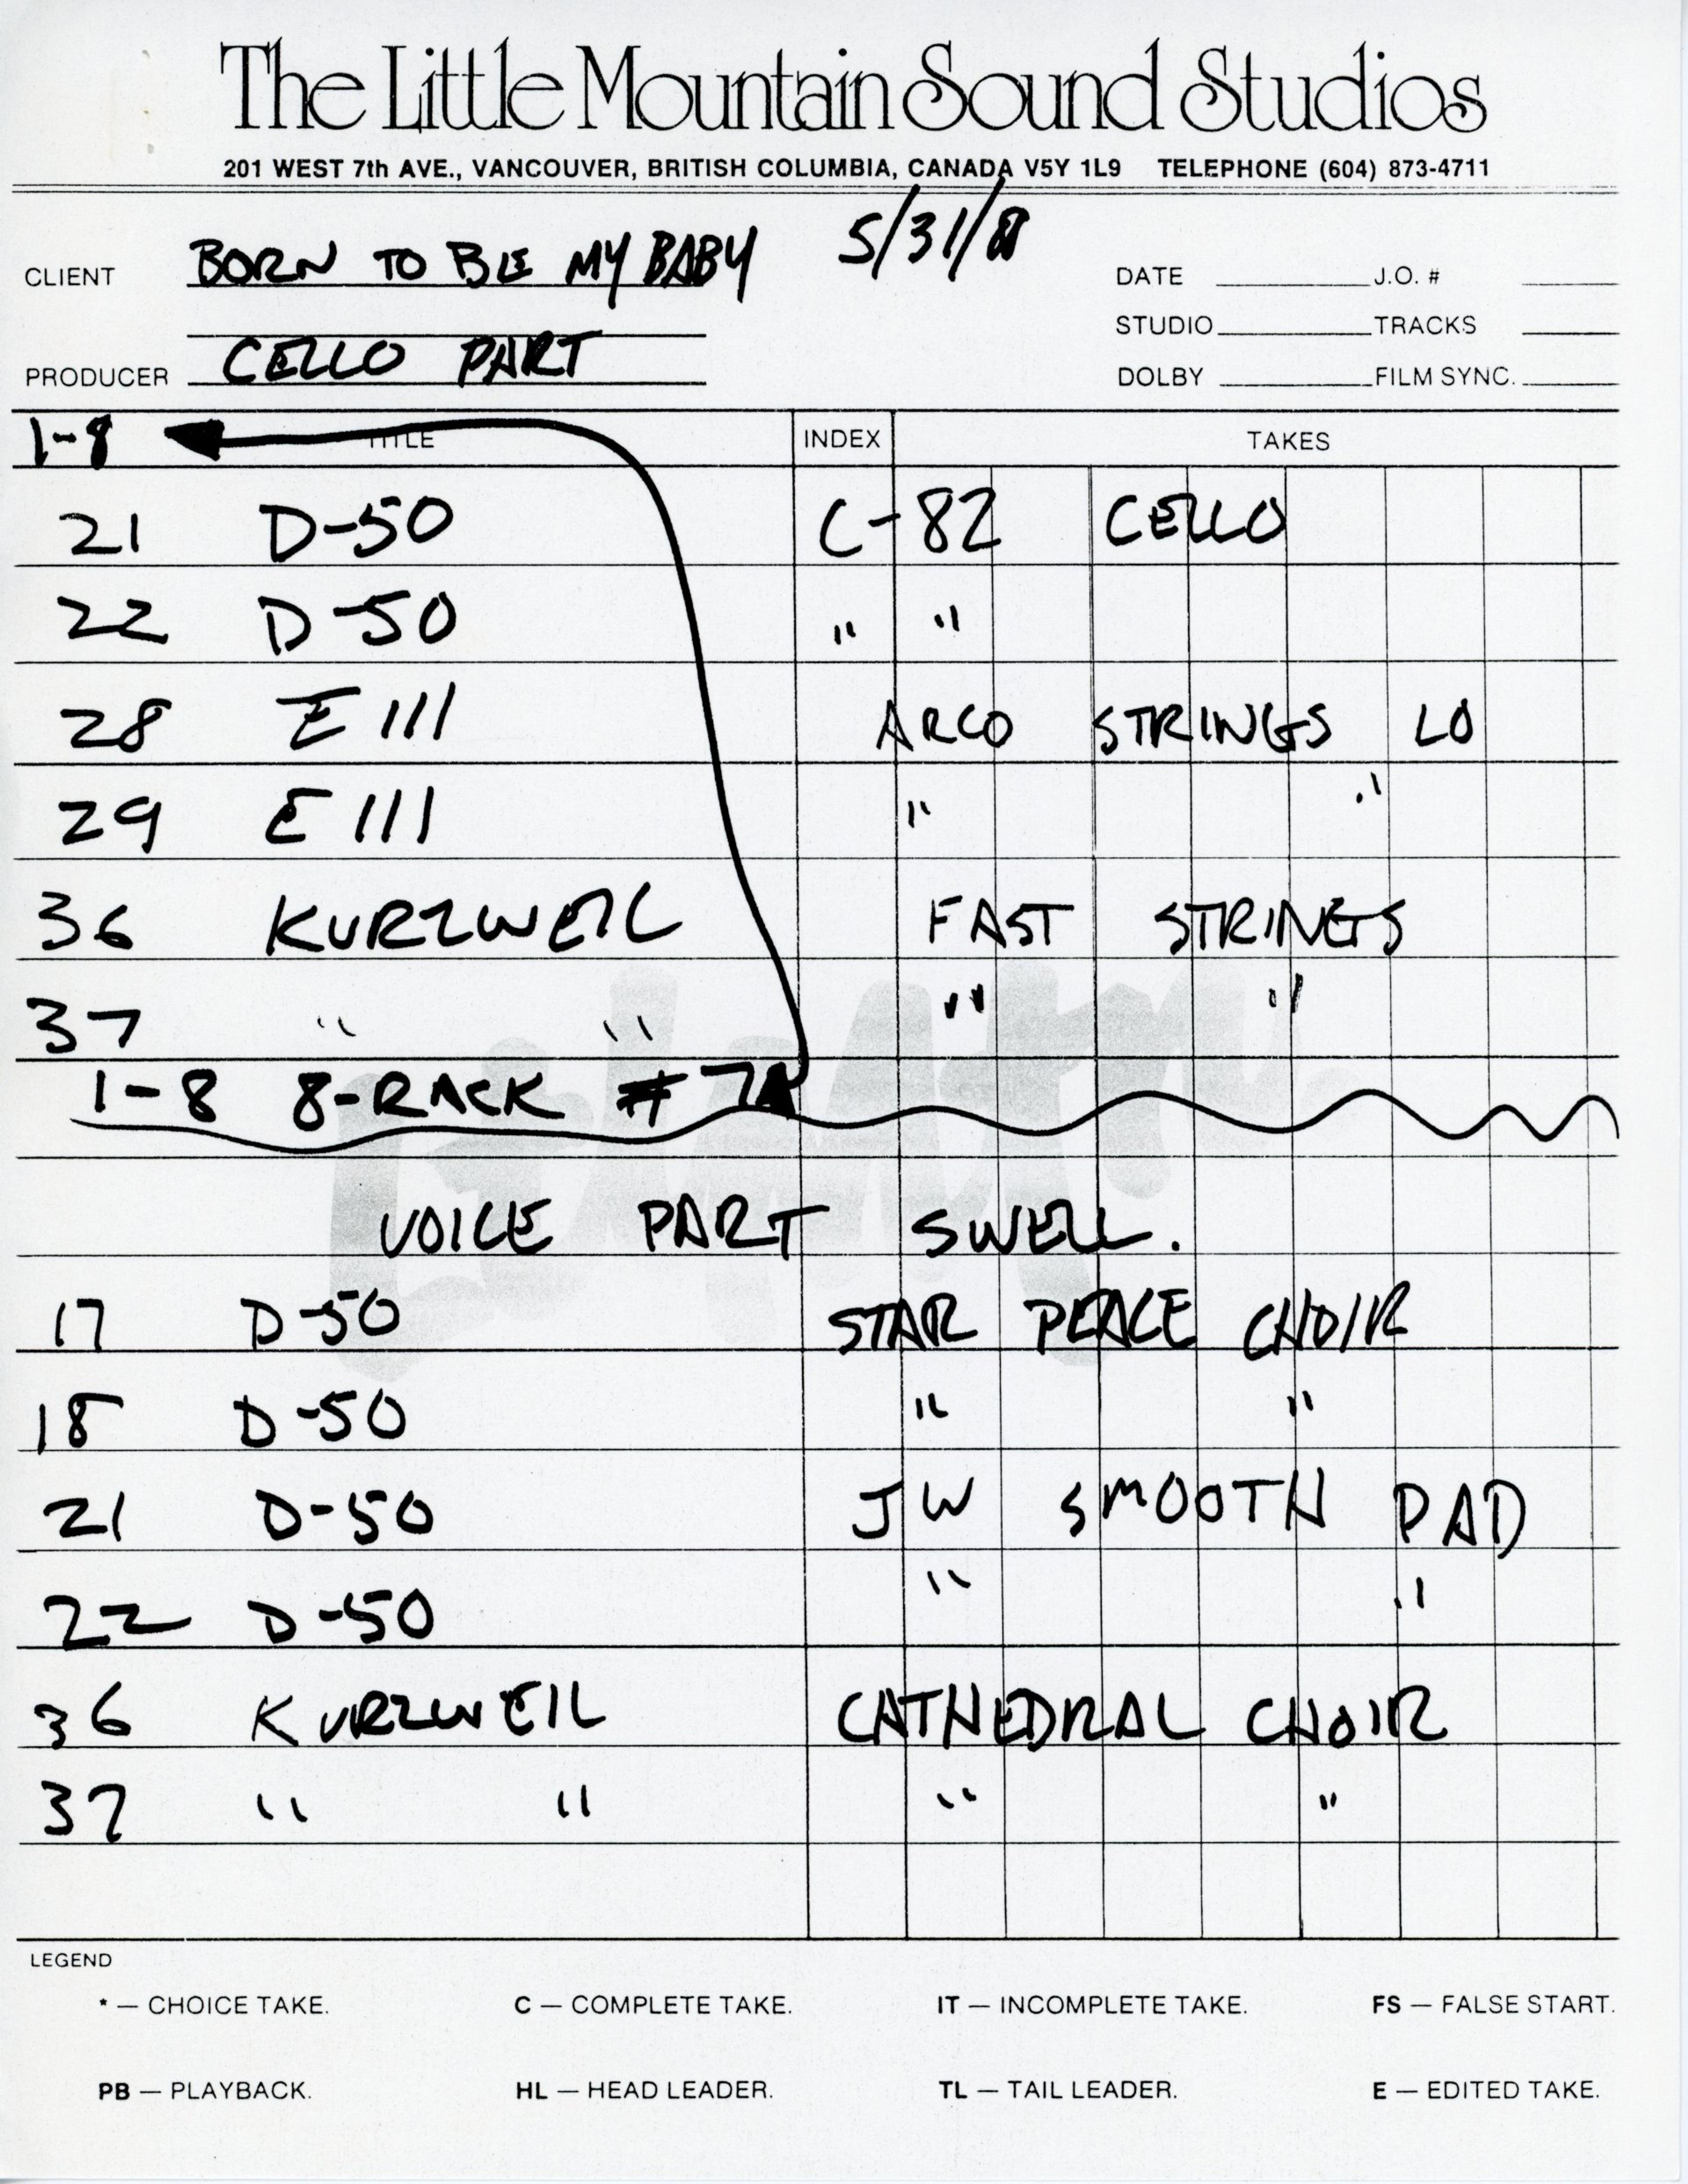 The Little Mountain Sound Studios
201 WEST 7th AVE., VANCOUVER, BRITISH COLUMBIA, CANADA V5Y 1L9 TELEPHONE (604) 873-4711
CLIENT BORN TO BE MY BABY 5/31/8
DATE J.O. #
STUDIO TRACKS
PRODUCER CELLO PART
DOLBY FILM SYNC.
1-8 TITLE INDEX TAKES
21 D-50 C-82 CELLO
22 D-50 " "
28 E III ARCO STRINGS LO
29 E III " "
36 KURZWEIL FAST STRINGS
37 " " " "
1-8 8-RACK #7
VOICE PART SWELL.
17 D-50 STAR PEACE CHOIR
18 D-50 " "
21 D-50 JW SMOOTH PAD
22 D-50 " "
36 KURZWEIL CATHEDRAL CHOIR
37 " " " "
LEGEND
* — CHOICE TAKE. C — COMPLETE TAKE. IT — INCOMPLETE TAKE. FS — FALSE START.
PB — PLAYBACK. HL — HEAD LEADER. TL — TAIL LEADER. E — EDITED TAKE.